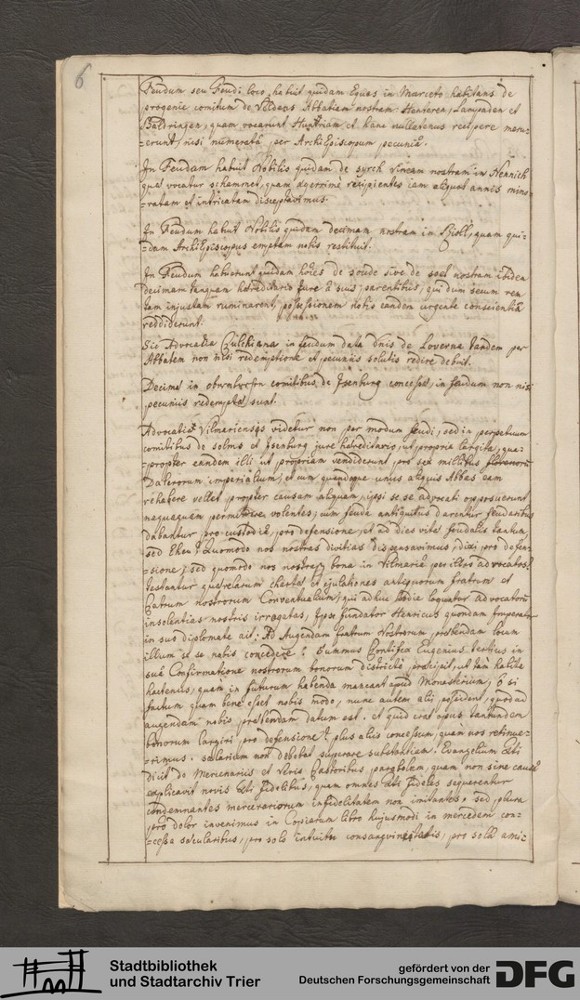 6
Feudum seu feudi loco habuit quidam Eques in Marceto habitans de
progenie comitum de Veldens Abbatiam nostram Hentern, Lampaden et
Baldringen, quam vocarunt Huntriam et hanc nullatenus recipere potu-
erunt, nisi numerata per ArchiEpiscopum pecunia.
In Feudum habuit Nobilis quidam de Syrck Vineam nostram in Nennich
quae vocatur Schammet, quam aegerrime recipientes iam aliquot annis mino-
ratam et intricatam disceptavimus.
In Feudum habuit Nobilis quidam decimam nostram in quam qui-
dam ArchiEpiscopus emptam nobis restituit.
In Feudum habuerunt quidam de sive de soel nostram
decimam tanquam haereditario jure a suis parentibus, qui dum secum rem
tam injustam ruminarent, possessionem nobis eandem urgente conscientia
reddiderunt.
Sic Advocatia in feudum data Dnis de Loverna tandem per
Abbatem non nisi redemptione et pecuniis solutis redire debuit.
Decima in comitibus de Isenburg concessa in feudum non nisi
pecuniis redempta sunt.
Advocatia Vilmariensis videtur non per modum feudi, sed in perpetuum
comitibus de Solms et Isenburg jure hereditario, ut propria largita, qua-
propter eandem illi ut propriam vendiderunt pro sex millibus florenorum
Dalerorum imperialium, et cum quandoque unus aliquis Abbas eam
rehabere vellet propter causam aliquam, ipsi se se advocati opposuerunt
nequaquam permittere volentes, cum feuda antiquitus darentur feudariis
dabantur pro custodia, pro defensione, et ad dies vitae feudalis tantum
sed Eheu! Quomodo nos nostras divitias dispensavimus, dixi, pro defen-
sione, sed quomodo nos nostraque bona in Vilmaria per illos advocatos?
testantur querelarum chartae et ejulationes antiquorum fratrum et
Patrum nostrorum Conventualium, qui adhuc hodie loquuntur advocatorum
insolentias nostris irrogatas, Ipse fundator Henricus quondam Imperator
in suo diplomate ait: Ad Augendam fratrum Nostrorum praebendam locum
illum se se nobis concedere? Summus Pontifex Eugenius tertius in
sua Confirmatione nostrorum bonorum districte prohipuit, ut tam habita
hactenus, quam in futurum habenda maneant apud Monasterium, o si
factum quam bene esset nobis modo, nunc autem alii possident, quod ad
augendam nobis praebendam datum est. et quid erat opus tantundem
bonorum largiri pro defensione? plus aliis concessum, quam nos retinue-
rimus. salarium non debebat superare substantiam. Evangelium Xti
dicit de Mercenariis et Veris Pastoribus parabolam, quam non sine causa
explicavit novis Xti fidelibus, quam omnes Xti fideles sequerentur
condemnantes mercenariorum infidelitatem non imitantes, sed plura
pro dolor invenimus in Copiarum libro hujusmodi in mercedem con-
cessa secularibus, pro solo intuitu consanguineitatis, pro sola ami-
Stadtbibliothek
und Stadtarchiv Trier
gefördert von der
Deutschen Forschungsgemeinschaft
DFG